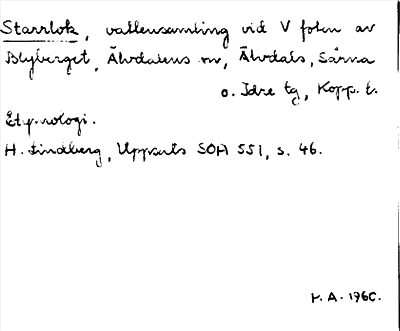 Starrlok, vattensamling vid V foten av
Blyberget, Älvdalens sn, Älvdals, Särna
o. Idre tg, Kopp. l.
Etymologi.
H. Lindberg, Uppsats SOH 551, s. 46.
P. A. 1960.